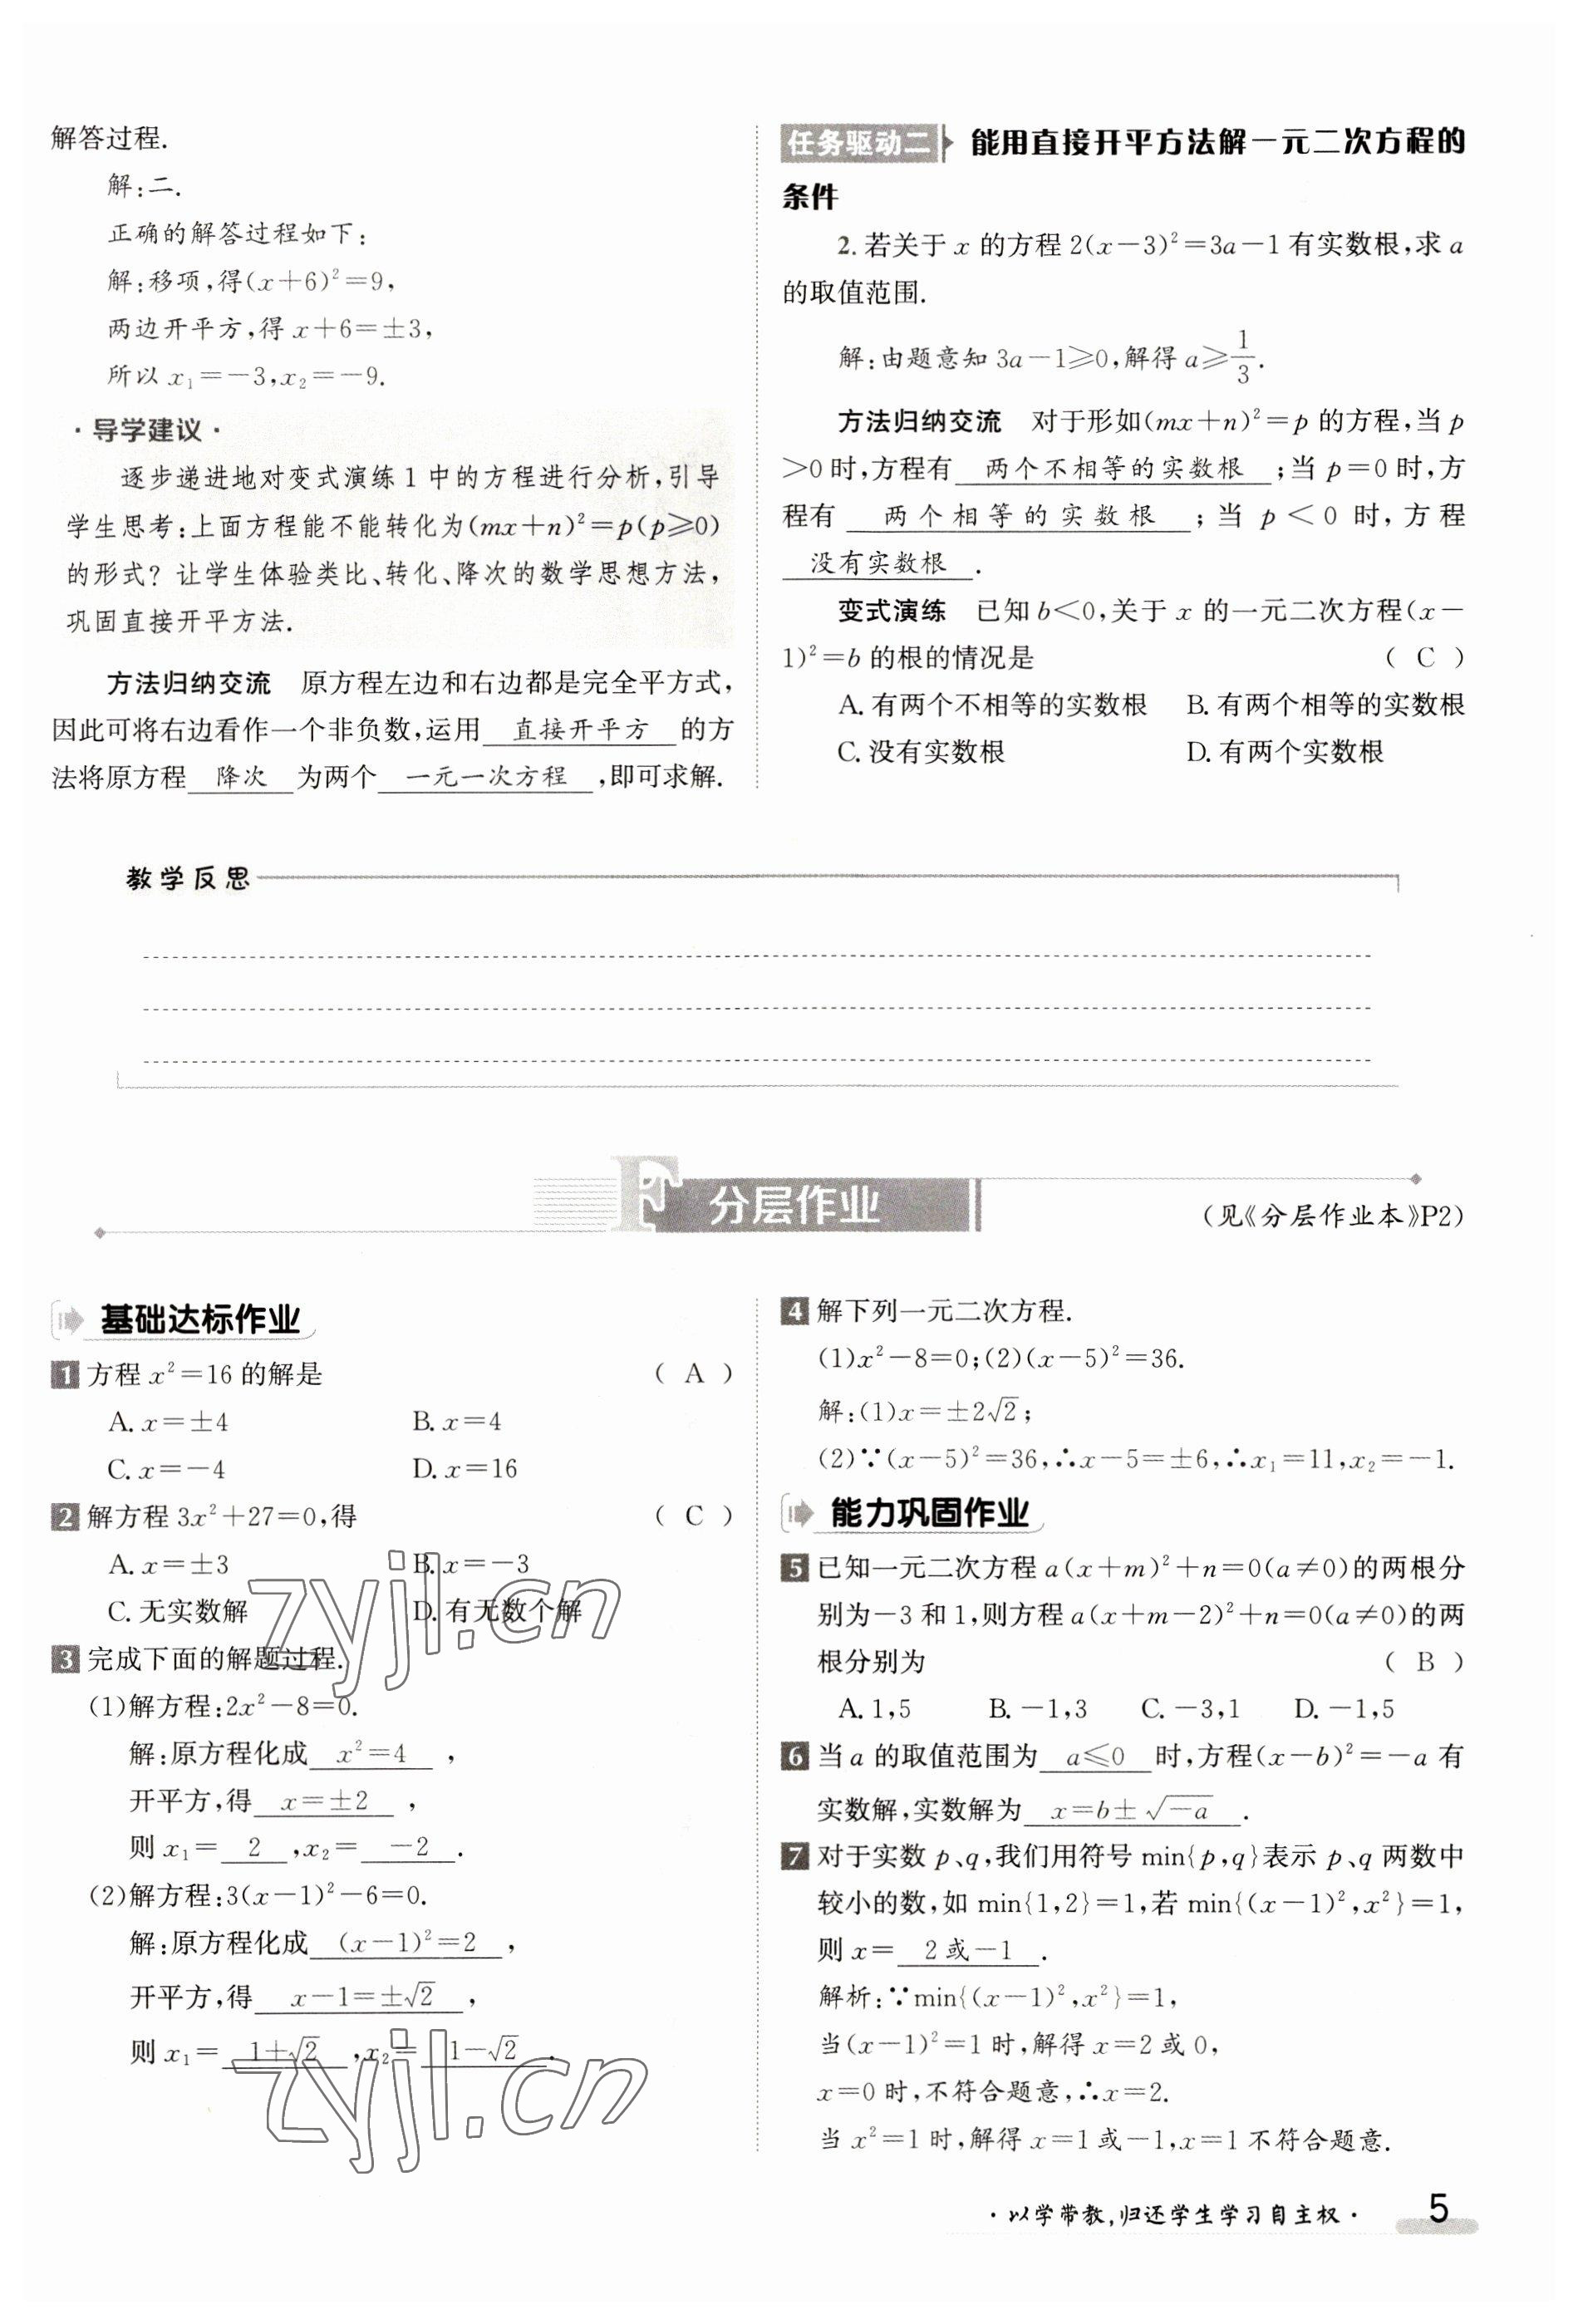 解答过程.
解:二.
正确的解答过程如下:
解:移项,得(x+6)²=9,
两边开平方,得 x+6=±3,
所以 x₁=-3,x₂=-9.
·导学建议·
逐步递进地对变式演练1中的方程进行分析,引导
学生思考:上面方程能不能转化为(mx+n)²=p(p≥0)
的形式?让学生体验类比、转化、降次的数学思想方法,
巩固直接开平方法.
方法归纳交流 原方程左边和右边都是完全平方式,
因此可将右边看作一个非负数,运用 直接开平方 的方
法将原方程 降次 为两个 一元一次方程 ,即可求解.
任务驱动二 能用直接开平方法解一元二次方程的
条件
2.若关于 x 的方程 2(x-3)²=3a-1 有实数根,求 a
的取值范围.
解:由题意知 3a-1≥0,解得 a≥1/3.
方法归纳交流 对于形如(mx+n)²=p 的方程,当 p
>0 时,方程有 两个不相等的实数根 ;当 p=0 时,方
程有 两个相等的实数根 ;当 p<0 时,方程
没有实数根 .
变式演练 已知 b<0,关于 x 的一元二次方程(x-
1)²=b 的根的情况是 ( C )
A.有两个不相等的实数根 B.有两个相等的实数根
C.没有实数根 D.有两个实数根
教学反思
F 分层作业
(见《分层作业本》P2)
基础达标作业
1 方程 x²=16 的解是 ( A )
A. x=±4 B. x=4
C. x=-4 D. x=16
2 解方程 3x²+27=0,得 ( C )
A. x=±3 B. x=-3
C. 无实数解 D. 有无数个解
3 完成下面的解题过程.
(1)解方程:2x²-8=0.
解:原方程化成 x²=4 ,
开平方,得 x=±2 ,
则 x₁= 2 ,x₂= -2 .
(2)解方程:3(x-1)²-6=0.
解:原方程化成 (x-1)²=2 ,
开平方,得 x-1=±√2 ,
则 x₁= 1+√2 ,x₂= 1-√2 .
4 解下列一元二次方程.
(1)x²-8=0;(2)(x-5)²=36.
解:(1)x=±2√2;
(2)∵(x-5)²=36,∴x-5=±6,∴x₁=11,x₂=-1.
能力巩固作业
5 已知一元二次方程 a(x+m)²+n=0(a≠0)的两根分
别为-3 和 1,则方程 a(x+m-2)²+n=0(a≠0)的两
根分别为 ( B )
A. 1,5 B. -1,3 C. -3,1 D. -1,5
6 当 a 的取值范围为 a≤0 时,方程(x-b)²=-a 有
实数解,实数解为 x=b±√-a .
7 对于实数 p、q,我们用符号 min{p,q}表示 p、q 两数中
较小的数,如 min{1,2}=1,若 min{(x-1)²,x²}=1,
则 x= 2或-1 .
解析:∵min{(x-1)²,x²}=1,
当(x-1)²=1 时,解得 x=2 或 0,
x=0 时,不符合题意,∴x=2.
当 x²=1 时,解得 x=1 或-1,x=1 不符合题意.
zyjl.cn
zyjl.cn
·以学带教,归还学生学习自主权· 5